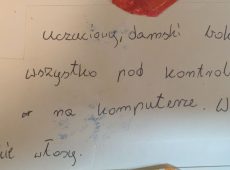 uczaciową, damski bok
wszystko pod kontrol
na komputerze. W
nie włosy.